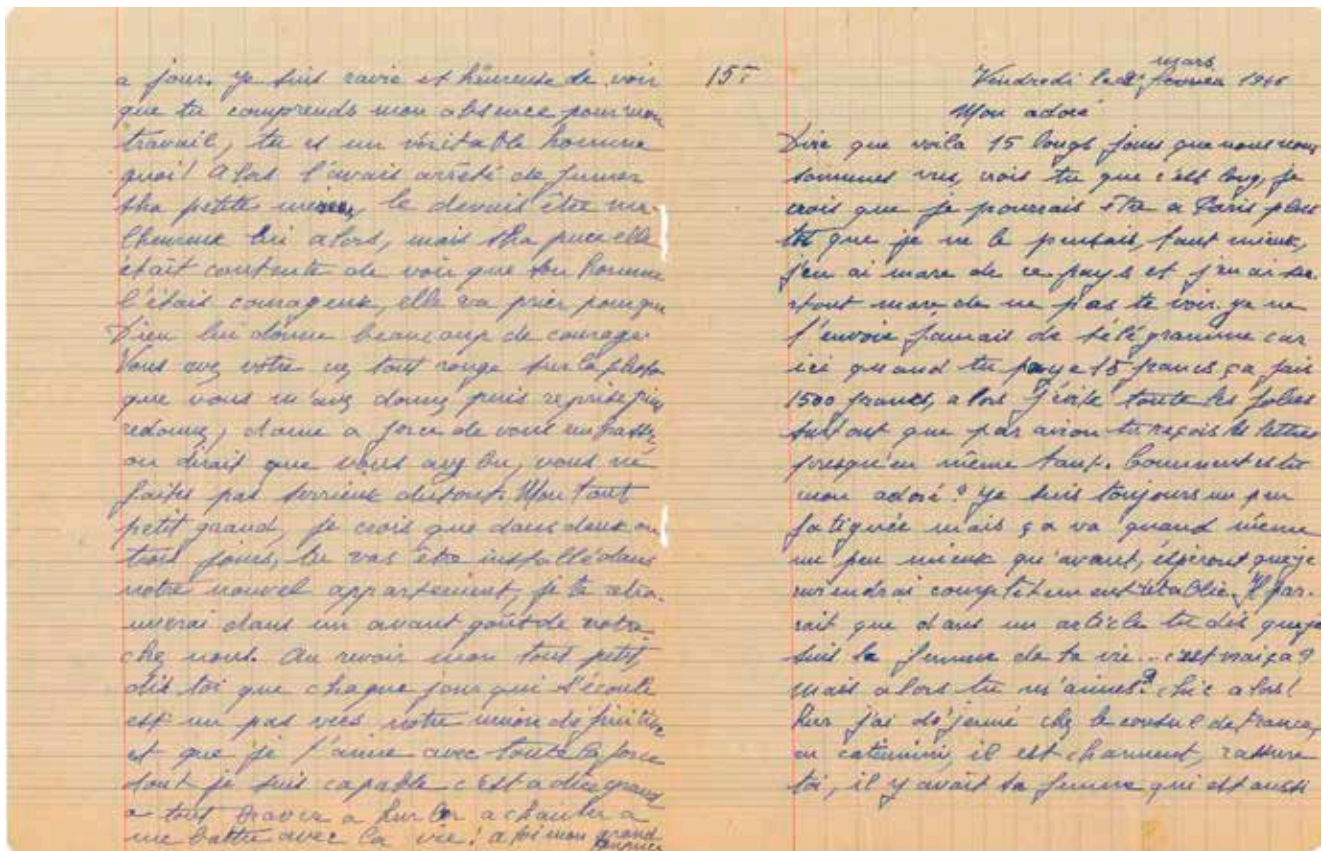 a jour. Je suis ravie et hëureuse de voir
que tu comprends mon absence pour mon
travail, tu es un véritable homme
quoi! Alors l'avais arrêté de fumer
sha petite mine, le devais être ma-
lheureux lui alors, mais sha puce elle
était contente de voir que son homme
l'était courageux, elle va prier pour que
Dieu lui donne beaucoup de courage
Vous avez votre nez tout rouge sur la photo
que vous m'avez donnez puis reprise puis
redonnez, dame a force de vous embrasser
on dirait que vous avez bu, vous ne
faites pas serrieux dutout. Mon tout
petit grand, je crois que dans deux ou
trois jours, tu vas être installé dans
notre nouvel appartement, je te retrou-
uverai dans un avant goût de notre
chez nous. Au revoir mon tout petit,
dis toi que chaque jour qui s'écoule
est un pas vers notre union définitive
et que je t'aime avec toute la force
dont je suis capable c'est a dire grand
a tout braver a hurler a chanter a
me battre avec la vie! a toi mon grand
15
Vendredi le mars fevrier 1946
Mon adoré
Dire que voila 15 longs jours que nous nous
sommes vus, crois tu que c'est long, je
crois que je pourrais être a Paris plus
tôt que je ne le pensais, tant mieux,
j'en ai marre de ce pays et j'en ai su-
rtout marre de ne pas te voir. Je ne
t'envoie jamais de télégramme car
ici quand tu paye 15 francs ça fait
1500 francs, alors j'évite toute les folies
surtout que par avion tu reçois les lettres
presqu'en même tant. Comment es tu
mon adoré? Je suis toujours un peu
fatiguée mais ça va quand même
un peu mieux qu'avant, éspéront que je
reviendrai complètement rétablie. Il par-
rait que dans un article tu dis que je
suis la femme de ta vie... c'est vrai ça?
Mais alors tu m'aimes? chic alors!
hier j'ai déjeuné chez le consul de France,
en catimini, il est charment, rassure
toi, il y avait sa femme qui est aussi